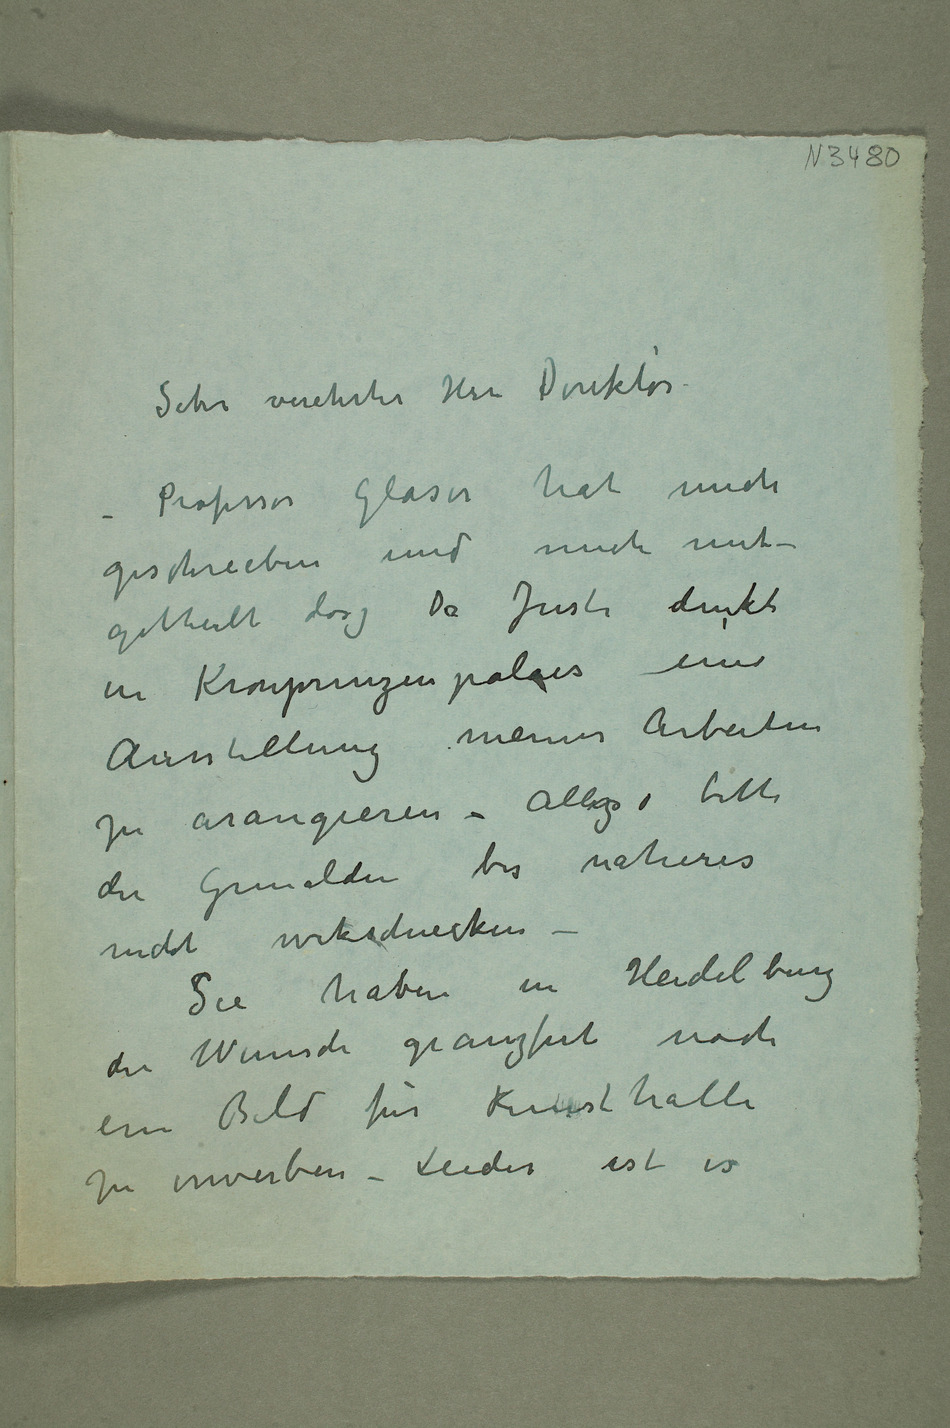 N 3480
Sehr verehrter Herr Direktor
– Professor Glaser hat mich
geschrieben und mich mit-
getheilt dasz Dr Justi denkt
in Kronprinzenpalaes eine
Ausstellung meiner Arbeiten
zu arangieren – Also bitte
die Gemälden bis näheres
nicht
Sie haben in Heidelburg
die Wunsch noch
ein Bild für Kunsthalle
zu erwerben – Leider ist es